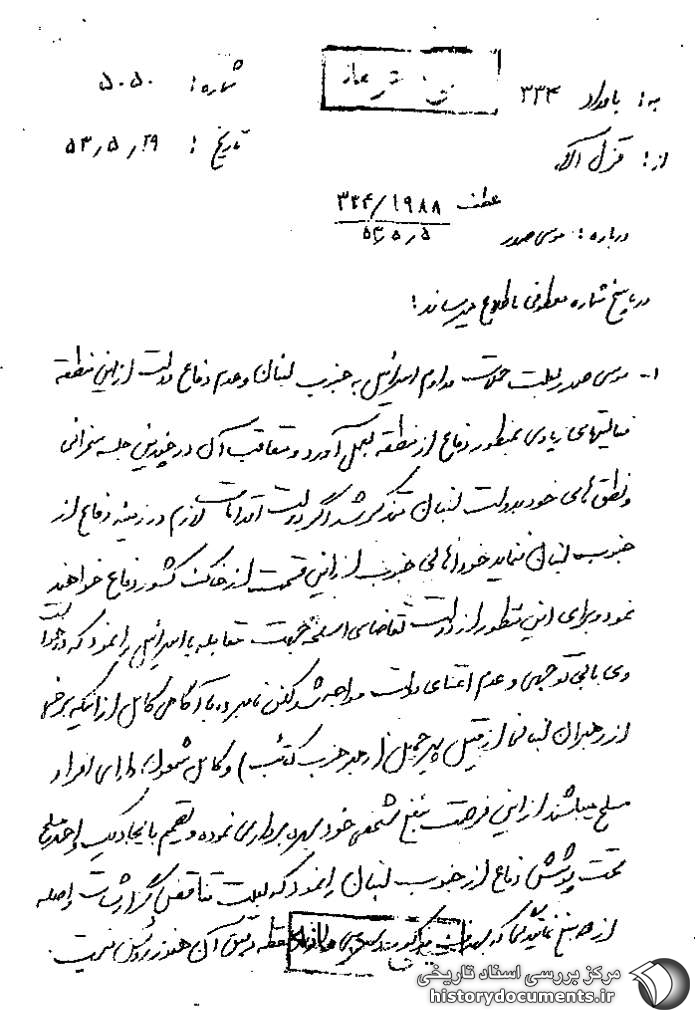 به: بامداد ۳۳۴
شماره: ۵۰۵۰
از: قزل آلا
تاریخ: ۵۳٫۵٫۲۹
عطف ۳۳۴/۱۹۸۸
۵۳٫۵٫۵
درباره: موسی صدر
در پاسخ شماره معطوفی باطلاع میرساند:
۱- موسی صدر بعلت حملات مداوم اسرائیل به جنوب لبنان و عدم دفاع دولت از این منطقه
فعالیتهای زیادی بمنظور دفاع از منطقه بعمل آورد و متعاقب آن در چندین جلسه سخنرانی
و نطق های خود بدولت لبنان متذکر شد اگر دولت اقدامات لازم در زمینه دفاع از
جنوب لبنان ننماید خود اهالی جنوب از این قسمت از خاک کشور دفاع خواهند
نمود و برای این منظور از دولت تقاضای اسلحه جهت مقابله با اسرائیل را نمود که درخواست
وی با بی توجهی و عدم اعتنای دولت مواجه شد لکن نامبرده با آگاهی کامل از اینکه برخی
از رهبران لبنانی از قبیل پیر جمیل (رهبر حزب کتائب) و کامیل شمعون دارای افراد
مسلح میباشند از این فرصت بنفع شخصی خود بهره برداری نموده و تصمیم بایجاد یک واحد مسلح
تحت پوشش دفاع از جنوب لبنان را نمود که بعلت تناقض گزارشات واصله
از منبع نمایندگی که دقیق آن هنوز روشن نیست
مرکز بررسی اسناد تاریخی
historydocuments.ir